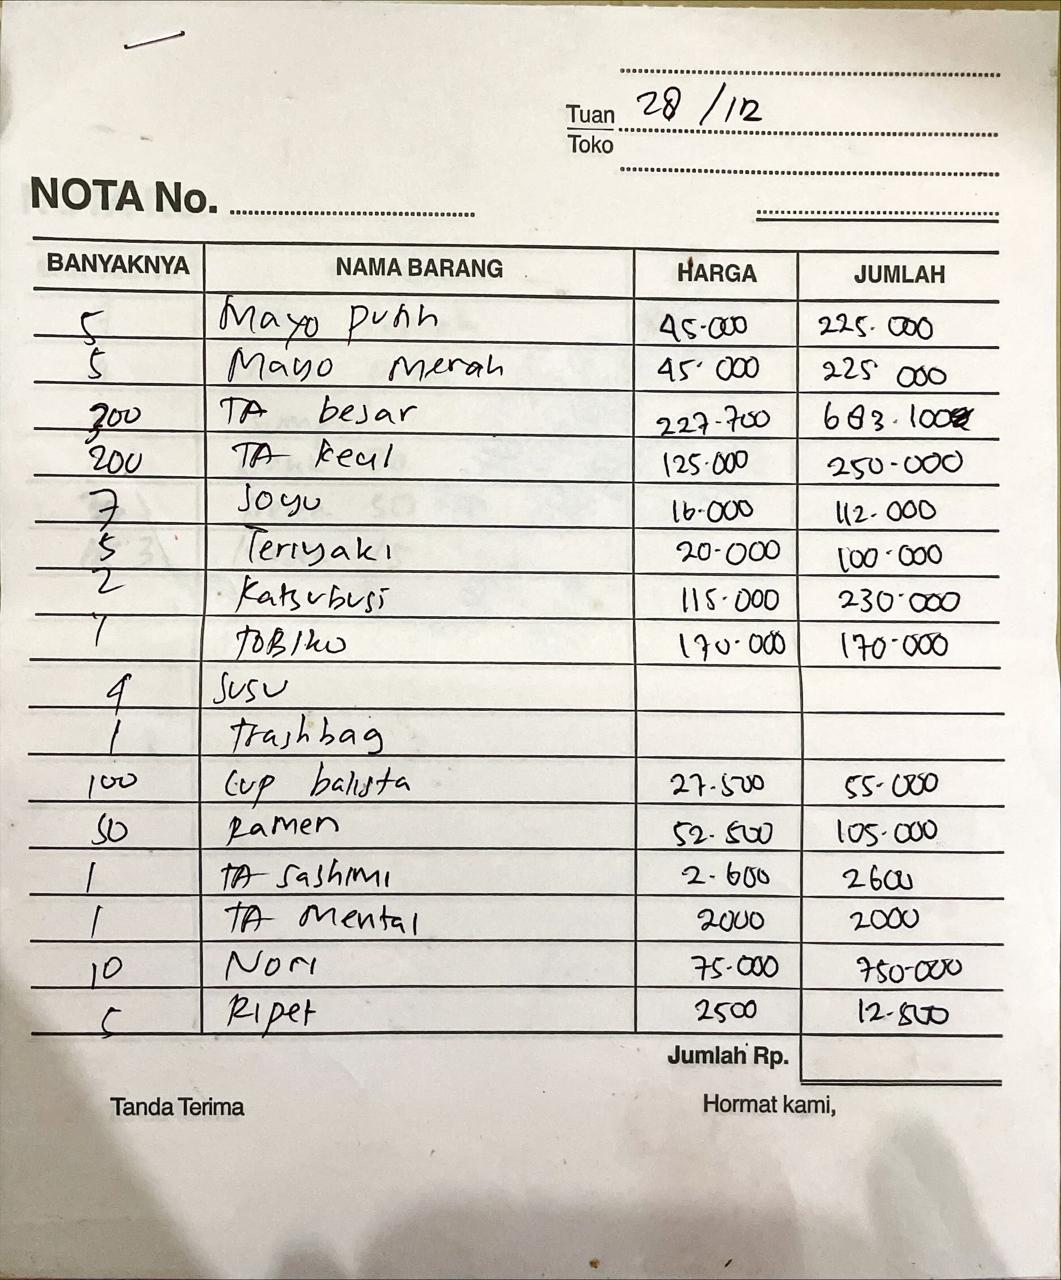 28 / 12
Tuan
Toko
NOTA No.
BANYAKNYA NAMA BARANG HARGA JUMLAH
5 Mayo putih 45.000 225.000
5 Mayo Merah 45.000 225 000
300 TA besar 227.700 683.100
200 TA kecil 125.000 250.000
7 Soyu 16.000 112.000
5 Teriyaki 20.000 100.000
2 Katsubusi 115.000 230.000
1 TOBIKO 170.000 170.000
4 SUSU
1 trashbag
100 Cup balista 27.500 55.000
50 Ramen 52.500 105.000
1 TA Sashimi 2.600 2600
1 TA Mental 2000 2000
10 Nori 75.000 750.000
5 Ripet 2500 12.500
Jumlah Rp.
Tanda Terima Hormat kami,